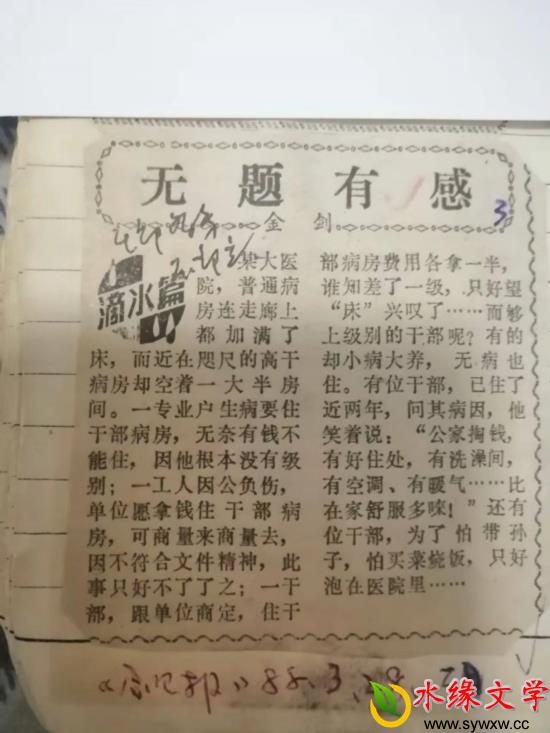 无题有感
金剑
3
滴水篇
某大医
院，普通病
房连走廊上
都加满了
床，而近在咫尺的高干
病房却空着一大半房
间。一专业户生病要住
干部病房，无奈有钱不
能住，因他根本没有级
别；一工人因公负伤，
单位愿拿钱住干部病
房，可商量来商量去，
因不符合文件精神，此
事只好不了了之；一干
部，跟单位商定，住干
部病房费用各拿一半，
谁知差了一级，只好望
“床”兴叹了……而够
上级别的干部呢？有的
却小病大养，无病也
住。有位干部，已住了
近两年，问其病因，他
笑着说：“公家掏钱，
有好住处，有洗澡间，
有空调、有暖气……比
在家舒服多唻！”还有
位干部，为了怕带孙
子，怕买菜烧饭，只好
泡在医院里……
报》88.3
水缘文学
www.sywxw.cc